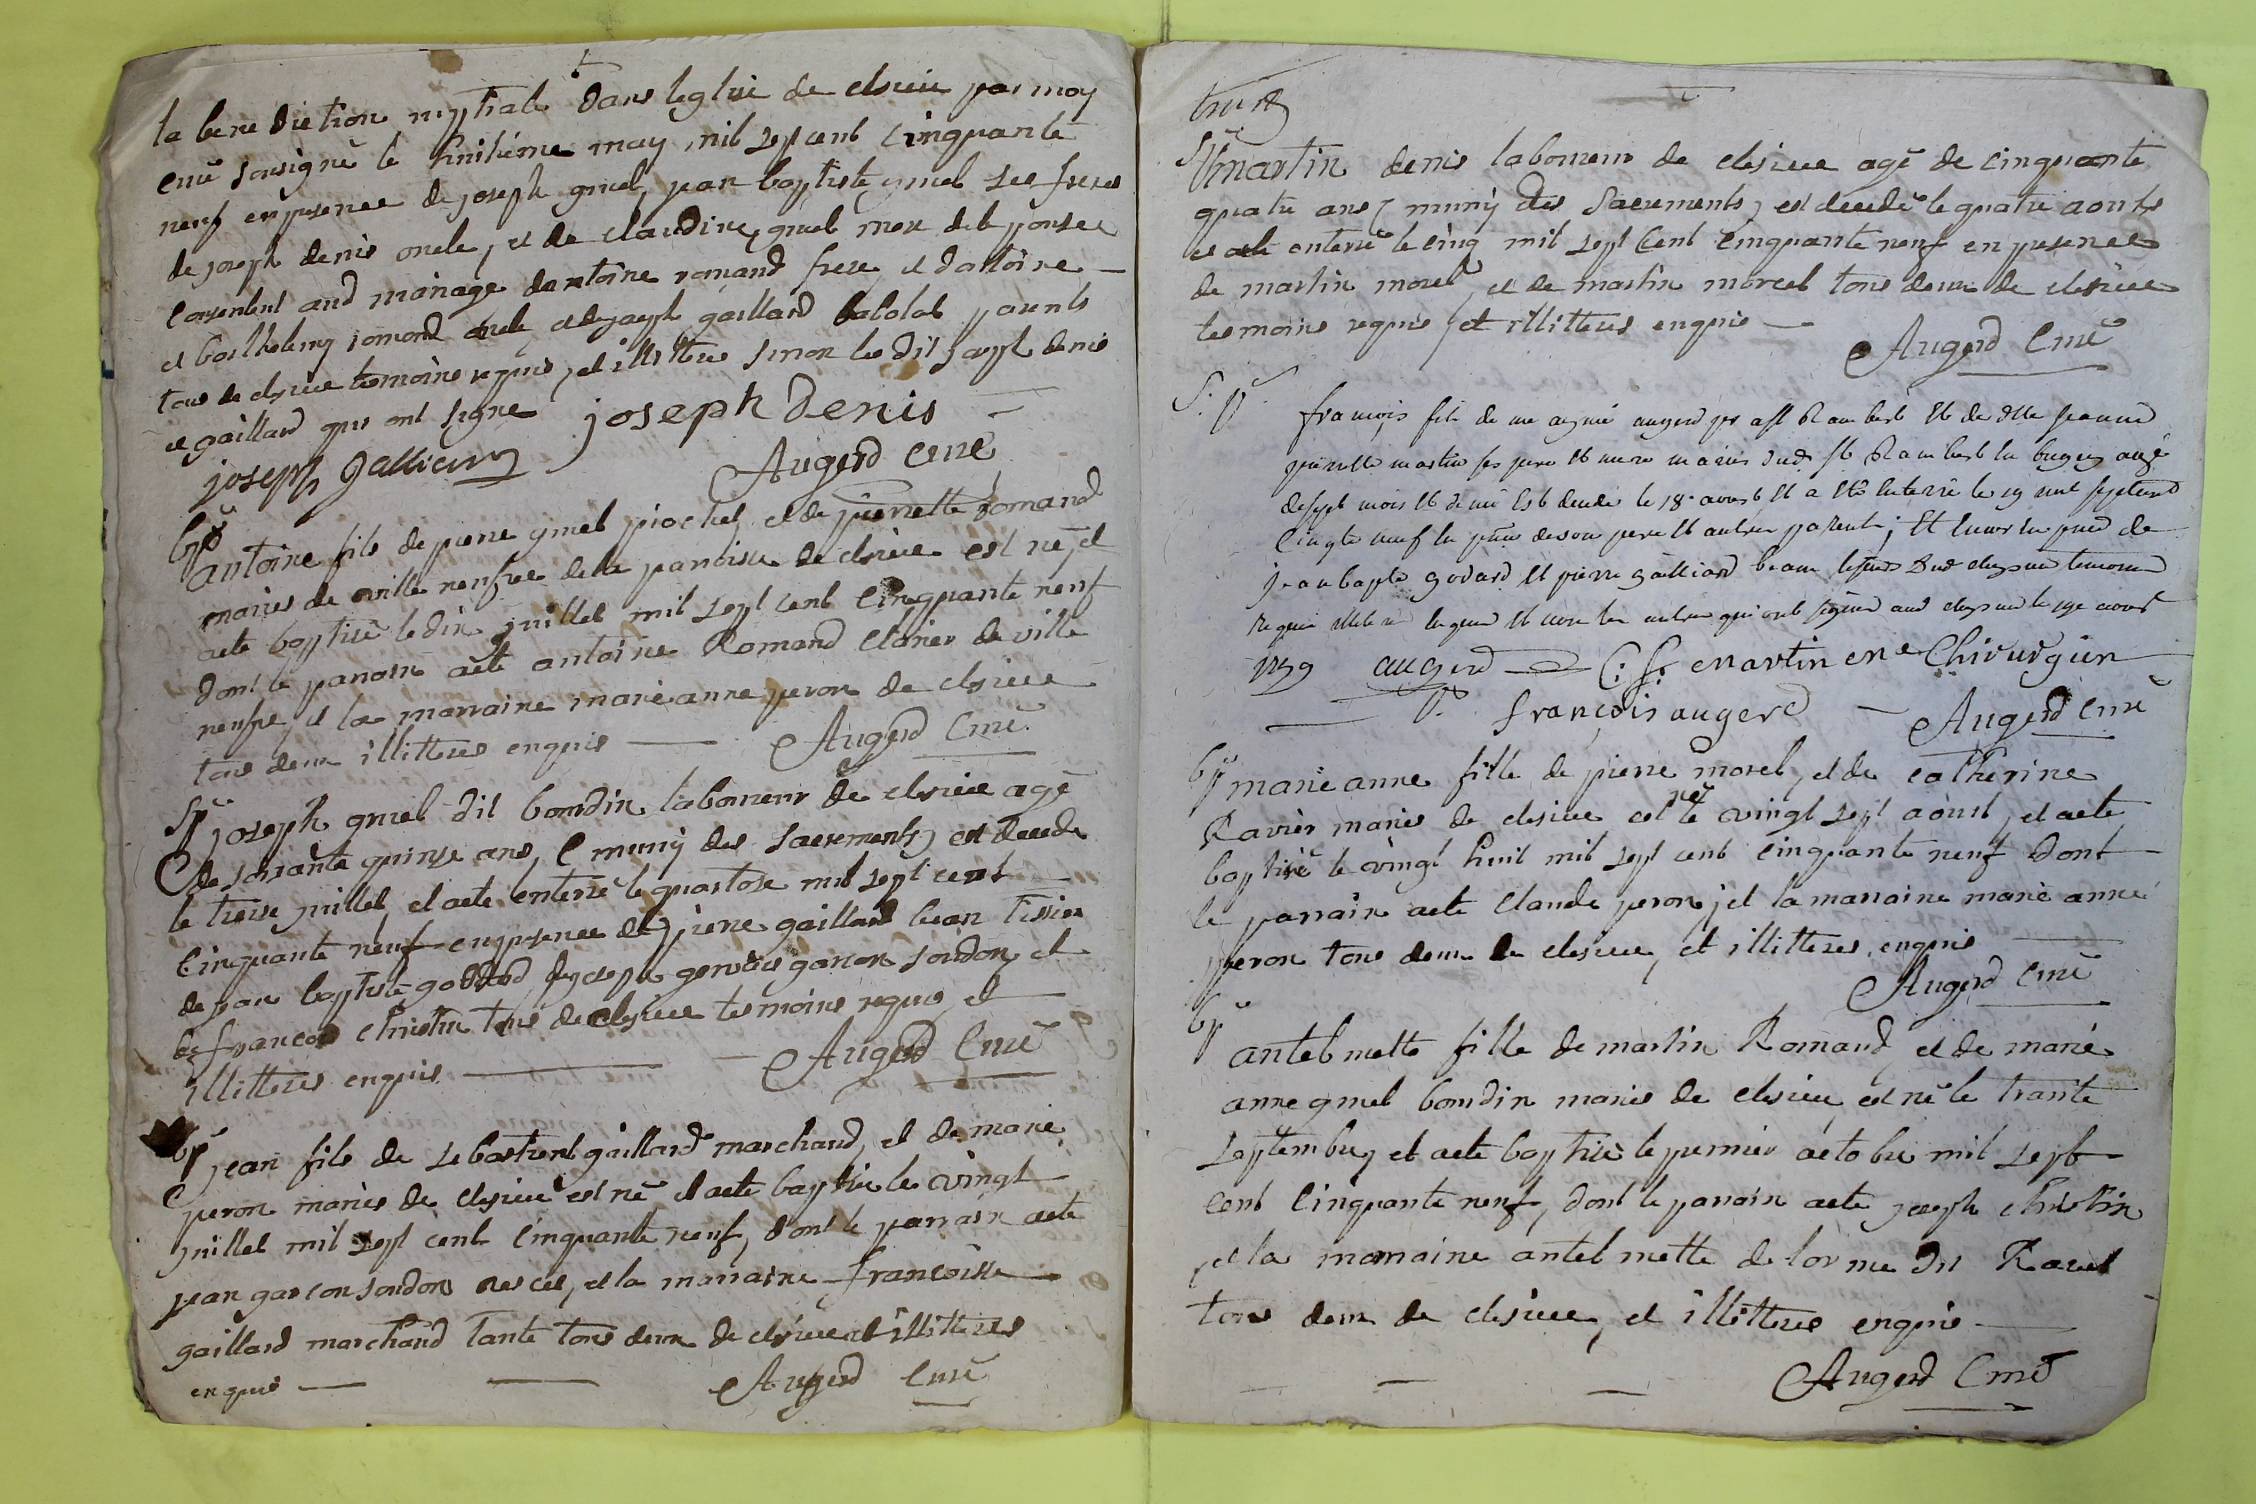 la benediction nuptiale dans leglise de clesieu par moy
curé sousigné le huitième may mil sept cent cinquante
neuf en presence de joseph gruel, jean baptiste gruel ses freres
de joseph denis oncle, et de claudine gruel mere de lepousee
consentent aud mariage dantoine romand frere, et dantoine
et barthelemy romand oncle et de joseph gaillard parents
tous de clesieu temoins requis, et illitteres sinon lesdits joseph denis
et gaillard qui ont signe joseph denis
joseph gallien Augerd curé
bp
antoine fils de pierre gruel piochet, et de pierrette romand
mariés de ville neufve dela parroisse de clesieu est né, et
aete baptisé le dix juillet mil sept cent cinquante neuf
dont le parrain aete antoine Romand clavier de ville
neufve, et la marraine marie anne peron de clesieu
tous deux illitteres enquis — Augerd Curé
Sp joseph gruel dit bourdin laboureur de clesieu agé
de soixante quinse ans, (muny des sacrements) est decedé
le treise juillet, et aete enterré le quatorse mil sept cent
cinquante neuf en presence de pierre gaillard bean tissier
de jean baptiste goddard joseph gervais garson soudon, et
de francois christin tous de clesieu temoins requis, et
illitteres enquis — Augerd Curé
bp jean fils de sebastient gaillard marchand, et de marie
peron mariés de clesieu est né et aete baptisé le vingt
juillet mil sept cent cinquante neuf, dont le parrain aete
jean garcon soudon, et la marraine francoise
gaillard marchand tante tous deux de clesieu et illitteres
enquis — Augerd Curé
Sp
martin denis laboureur de clesieu agé de cinquante
quatre ans (muny des sacrements) est decedé le quatre aoust
et aete enterré le cinq mil sept cent cinquante neuf en presence
de martin morel, et de martin morcel tous deux de clesieu
temoins requis, et illitteres enquis —
Augerd Curé
S.p.
françois fils de augerd st Rambert et de dlle jeanne
pierrette martin ses pere et mere mariés dud st Rambert en bugey agé
de sept mois et demi est decedé le 18e aoust et a eté enterré le 19 mil sept cent
cinqte neuf en pnce de son pere et autres parents; et encor en pnce de
jean bapte godard et pierre gailliard beam dud temoins
requis illiteré enquis et non les autres qui ont signé aud le 19e aoust
1759 augerd C. f. martin me Chirurgien
françois augerd — Augerd Curé
bp marie anne fille de pierre morel, et de catherine
Ravier mariés de clesieu est née le vingt sept aoust, et aete
baptisé le vingt huit mil sept cent cinquante neuf dont
le parrain aete claude peron, et la marraine marie anne
peron tous deux de clesieu, et illitteres enquis —
Augerd Curé
bp
antelmette fille de martin Romand, et de marie
anne gruel bourdin mariés de clesieu est né le trante
septembre, et aete baptisé le premier octobre mil sept
cent cinquante neuf, dont le parrain aete joseph christin
et la marraine antelmette de lorme dit Ravet
tous deux de clesieu, et illitteres enquis —
Augerd Curé